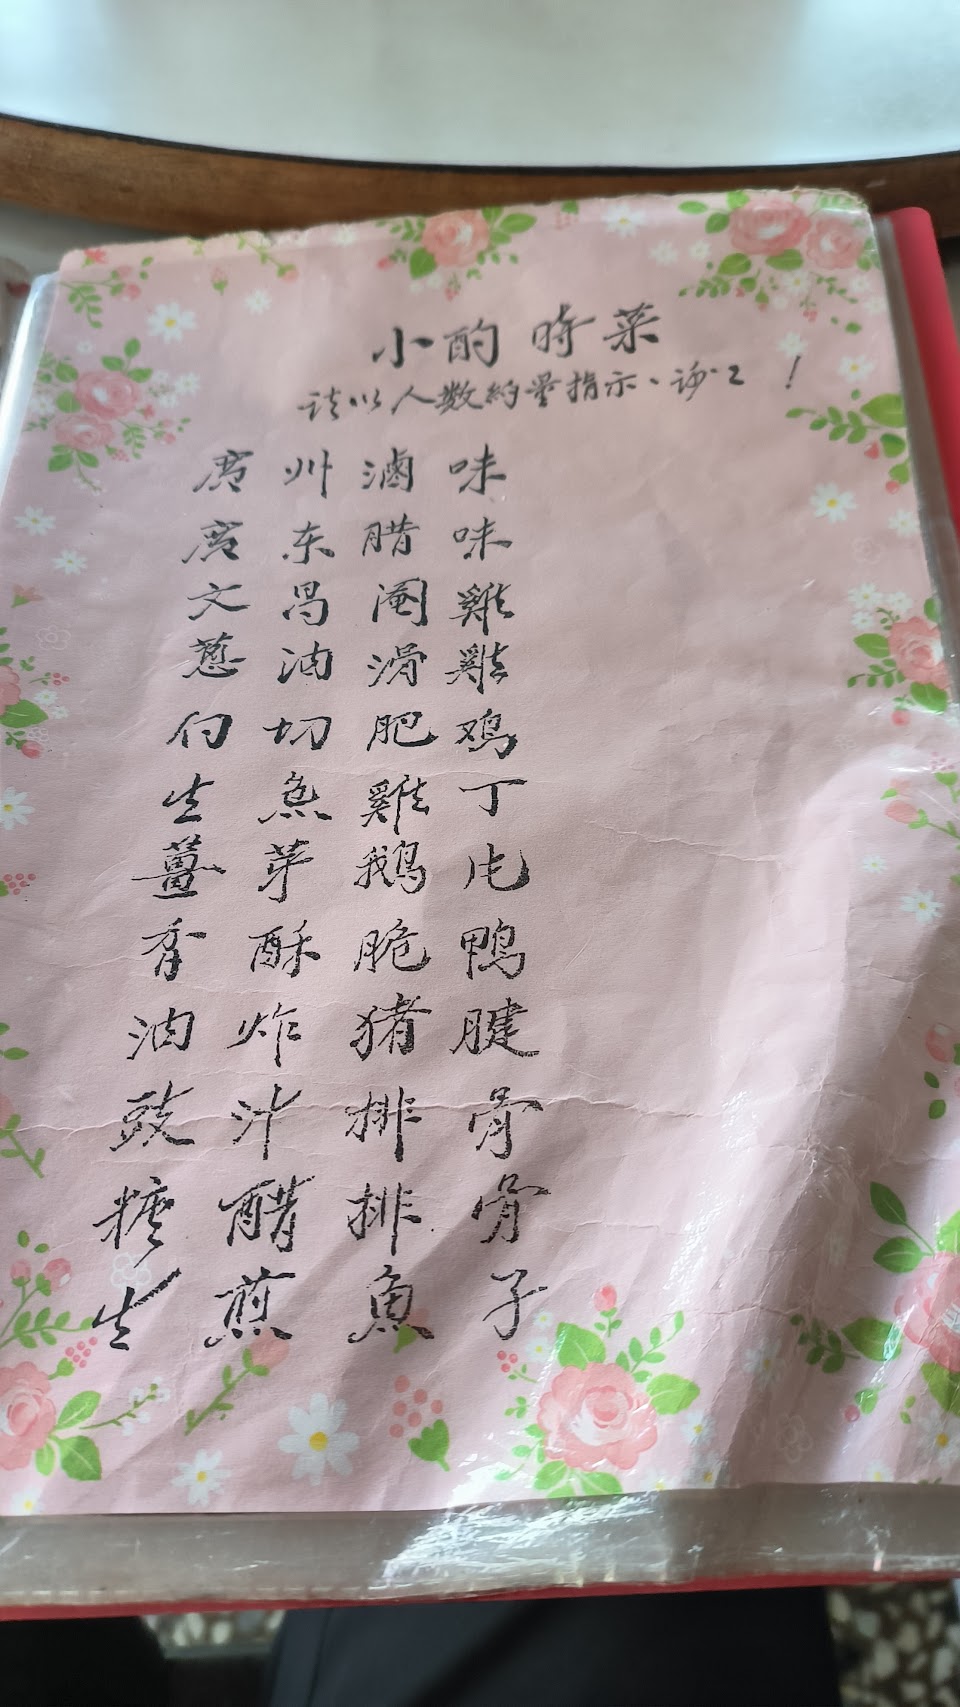 小酌時菜
请以人数約量指示、謝謝！
廣州滷味
廣东腊味
文昌淹雞
葱油滑雞
白切肥鸡
生魚雞丁
薑芽鵝片
香酥脆鴨
油炸猪腱
豉汁排骨
糖醋排骨
生煎魚子